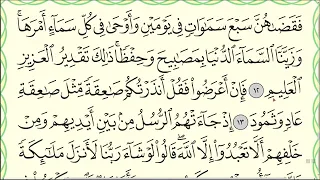 فَقَضَىٰهُنَّ سَبْعَ سَمَٰوَاتٍ فِي يَوْمَيْنِ وَأَوْحَىٰ فِي كُلِّ سَمَآءٍ أَمْرَهَاۚ
وَزَيَّنَّا ٱلسَّمَآءَ ٱلدُّنْيَا بِمَصَٰبِيحَ وَحِفْظٗاۚ ذَٰلِكَ تَقْدِيرُ ٱلْعَزِيزِ
ٱلْعَلِيمِ ١٢ فَإِنْ أَعْرَضُواْ فَقُلْ أَنذَرْتُكُمْ صَٰعِقَةٗ مِّثْلَ صَٰعِقَةِ
عَادٖ وَثَمُودَ ١٣ إِذْ جَآءَتْهُمُ ٱلرُّسُلُ مِنۢ بَيْنِ أَيْدِيهِمْ وَمِنْ
خَلْفِهِمْ أَلَّا تَعْبُدُوٓاْ إِلَّا ٱللَّهَۖ قَالُواْ لَوْ شَآءَ رَبُّنَا لَأَنزَلَ مَلَٰٓئِكَةٗ